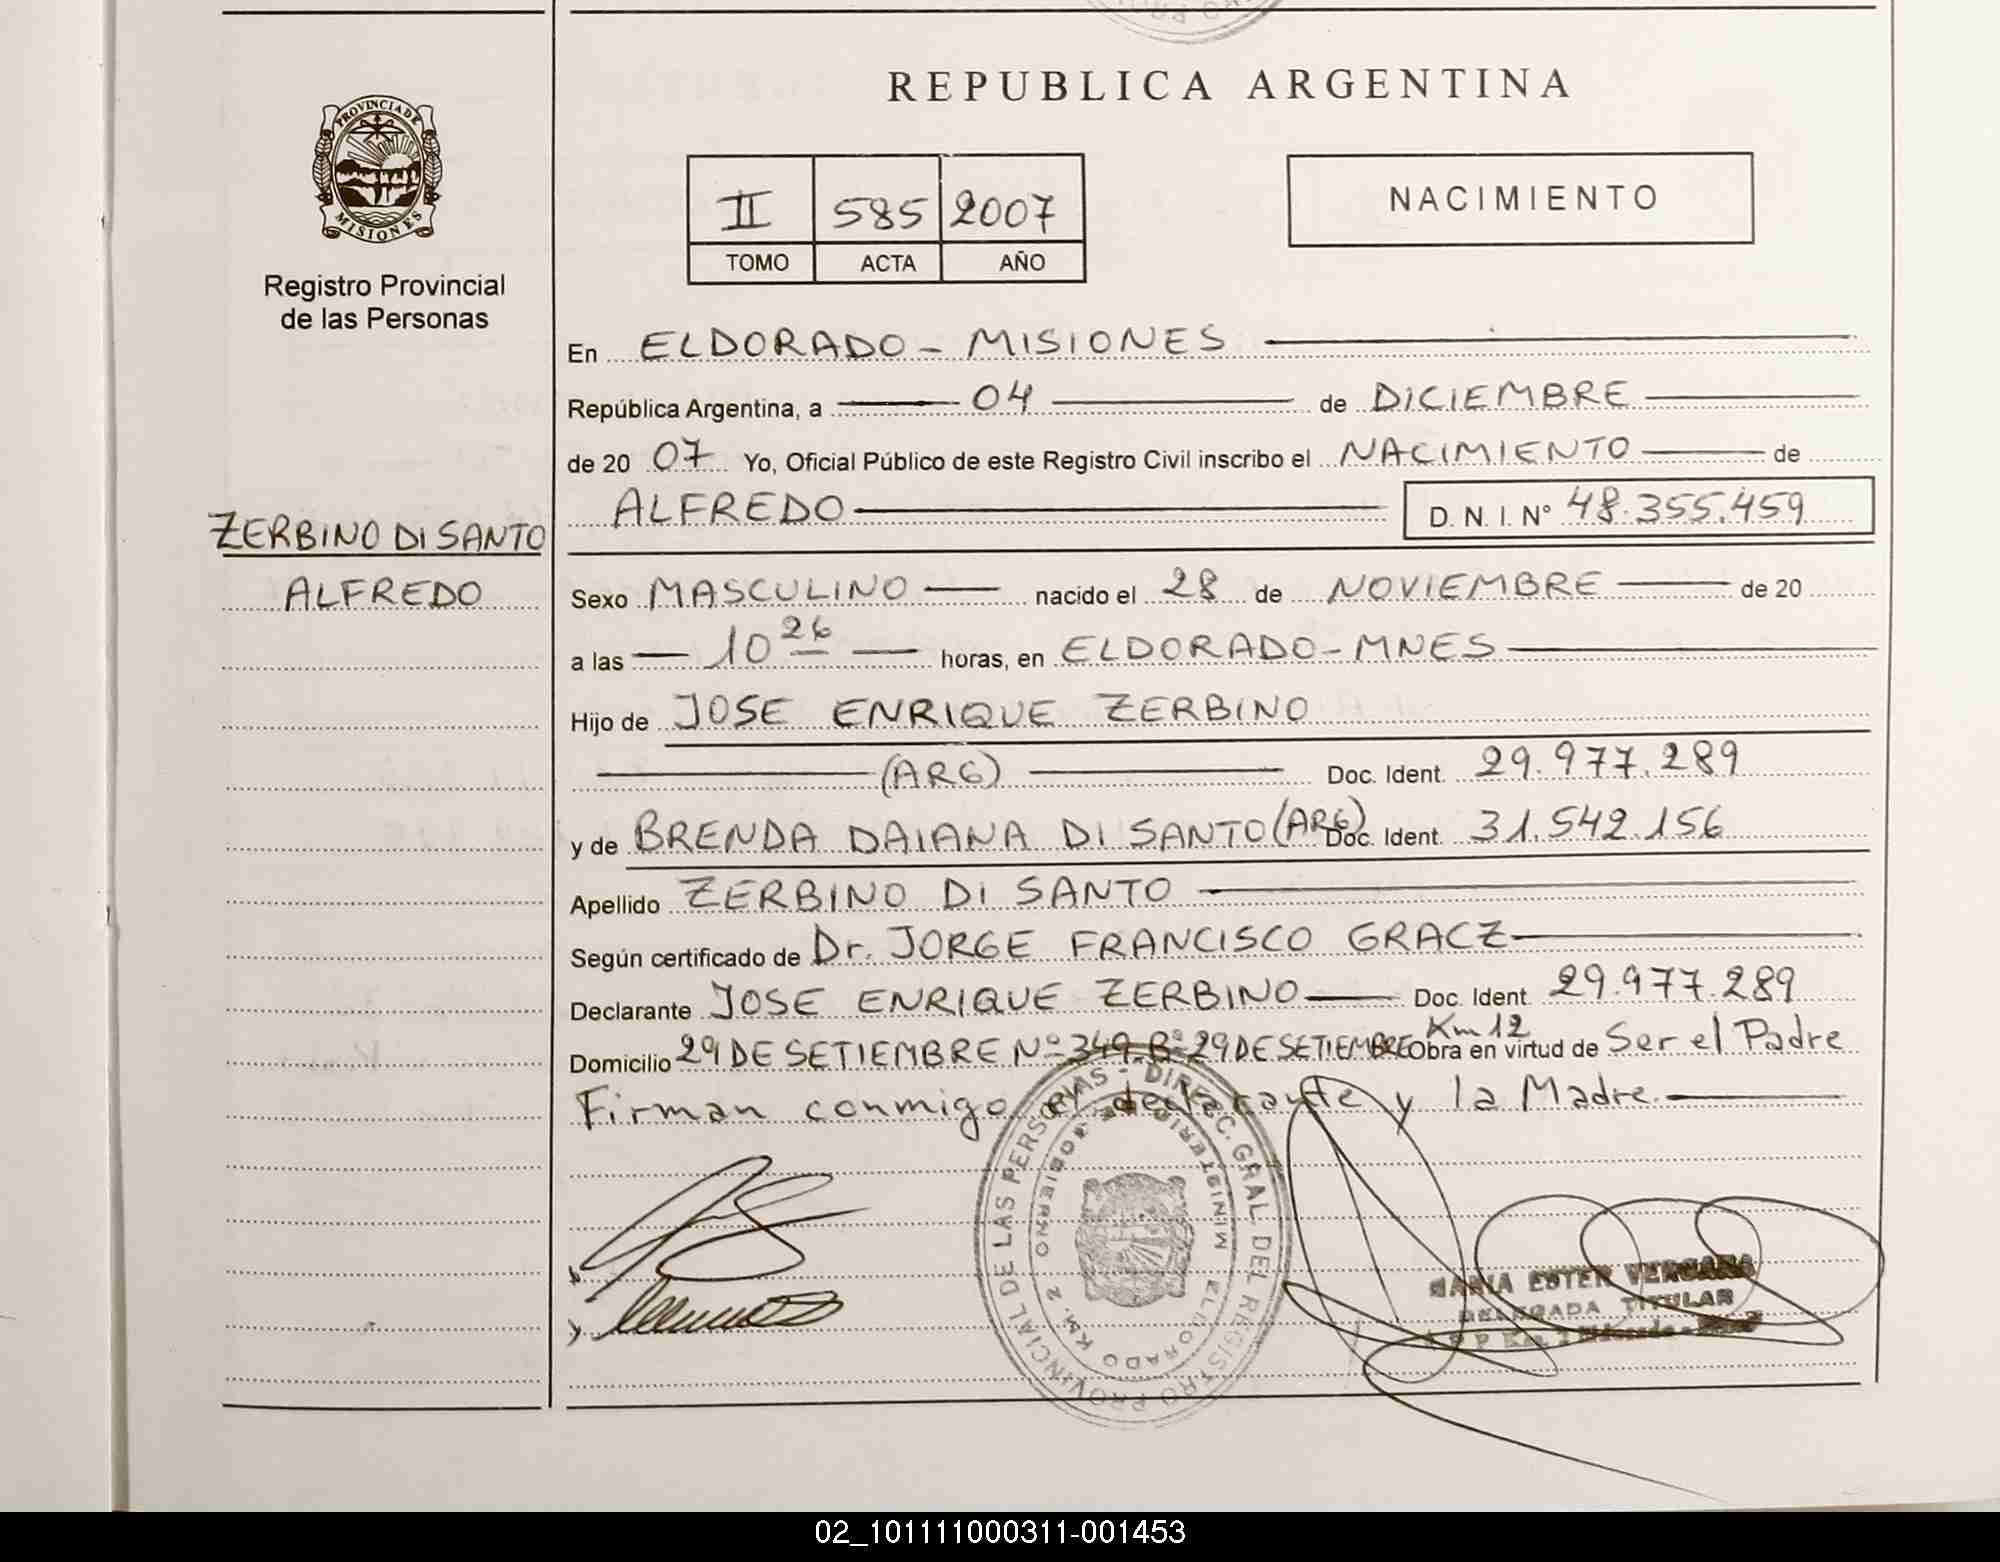 REPUBLICA ARGENTINA
PROVINCIA DE
MISIONES
Registro Provincial
de las Personas
II 585 2007
TOMO ACTA AÑO
NACIMIENTO
En ELDORADO - MISIONES
República Argentina, a 04 de DICIEMBRE
de 20 07 Yo, Oficial Público de este Registro Civil inscribo el NACIMIENTO de
ALFREDO D. N. I. Nº 48.355.459
ZERBINO DI SANTO
ALFREDO
Sexo MASCULINO nacido el 28 de NOVIEMBRE de 20
a las 10 26 horas, en ELDORADO-MNES
Hijo de JOSE ENRIQUE ZERBINO
(ARG) Doc. Ident. 29.977.289
y de BRENDA DAIANA DI SANTO (ARG) Doc. Ident. 31.542.156
Apellido ZERBINO DI SANTO
Según certificado de Dr. JORGE FRANCISCO GRACZ
Declarante JOSE ENRIQUE ZERBINO Doc. Ident. 29.977.289
Domicilio 29 DE SETIEMBRE Nº 349-Bº 29 DE SETIEMBRE Km 12 Obra en virtud de Ser el Padre
Firman conmigo el declarante y la Madre.
DIREC. GRAL. DEL REGISTRO PROVINCIAL DE LAS PERSONAS
MINISTERIO DE GOBIERNO
ELDORADO KM. 2
MARIA ESTER VERGARA
DELEGADA TITULAR
02_101111000311-001453